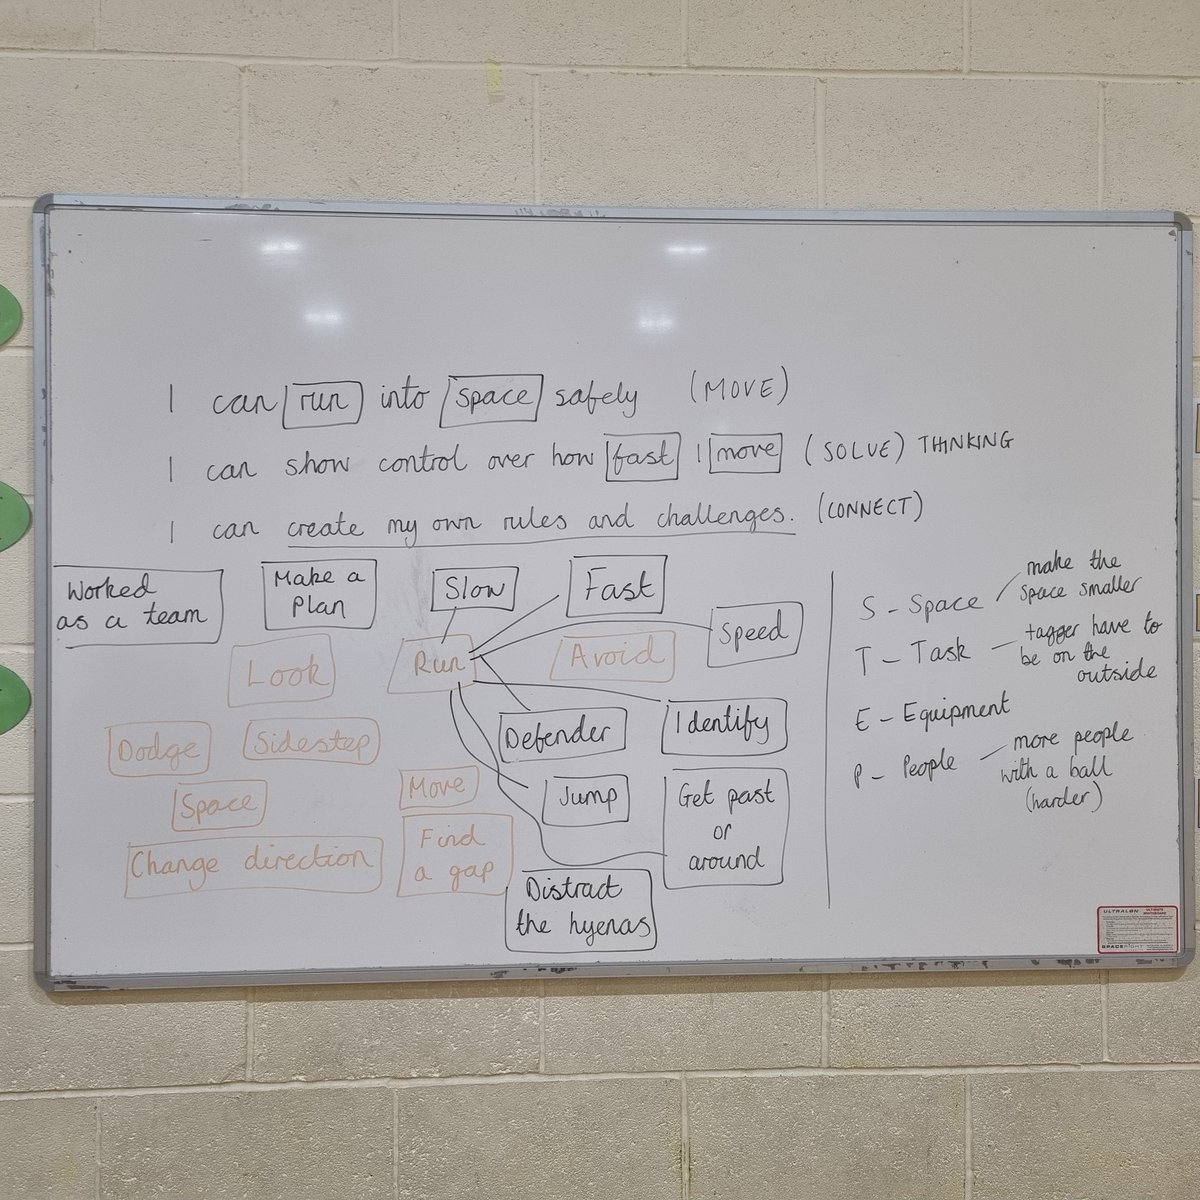 I can run into space safely (MOVE)
I can show control over how fast I move (SOLVE) THINKING
I can create my own rules and challenges. (CONNECT)
Worked
as a team
Make a
Plan
Slow
Fast
Speed
Look
Run
Avoid
Defender
Identify
Dodge
Sidestep
Space
Move
Jump
Get past
or
around
Change direction
Find
a gap
Distract
the hyenas
S - Space
make the
space smaller
T - Task
tagger have to
be on the
outside
E - Equipment
P - People
more people
with a ball
(harder)
ULTRALON
SPACERIGHT